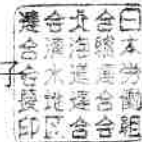 日本労働組
合総連合会
北海道連合
会清水地区
連合会議印
子